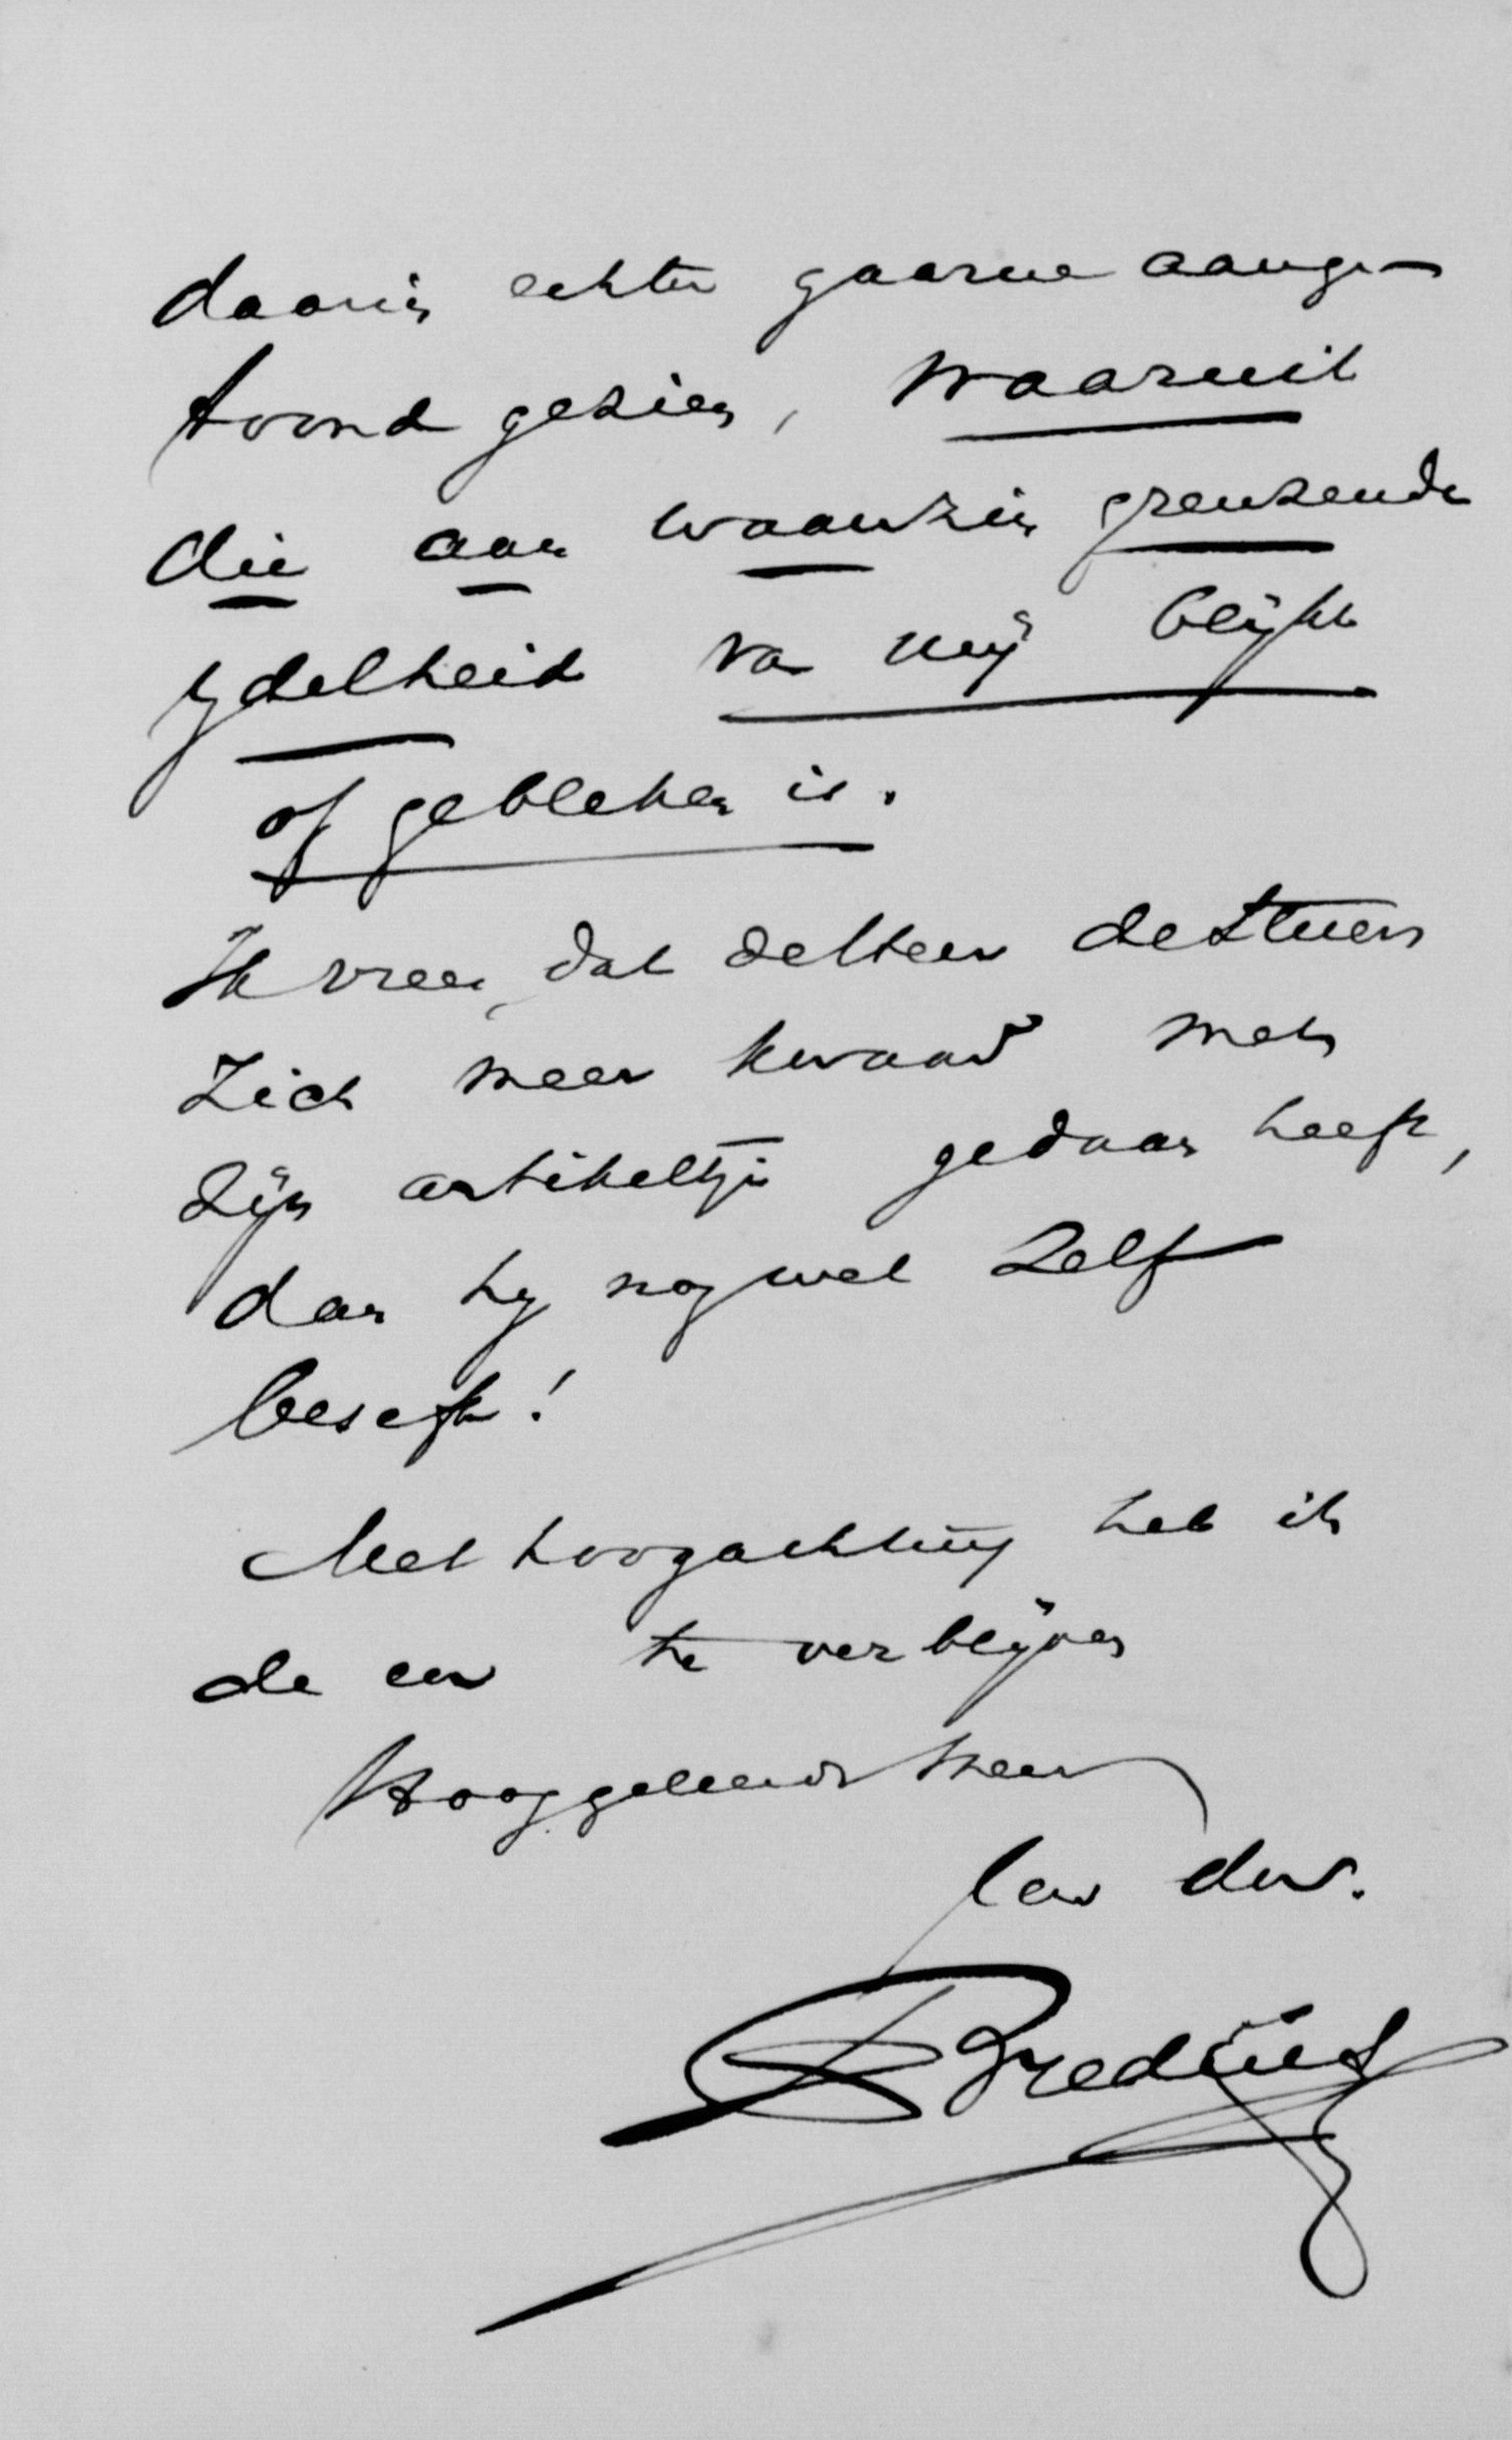 daarin echter gaarne aange-
toond gezien, waaruit
die aan waanzin grenzende
ydelheid van mij blijkt
of gebleken is.
Ik vrees, dat de Heer de Stuers
zich meer kwaad met
zijn artikeltje gedaan heeft,
dan hy nog wel zelf
beseft!
Met hoogachting heb ik
de eer te verblijven
Hooggeleerde Heer
Uw dw.
A Bredius